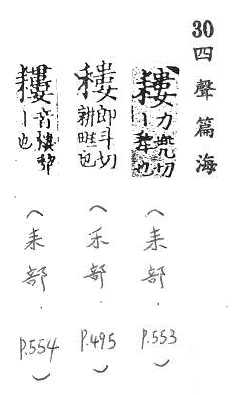 30四聲篇海
耬力兜切丨犂也（耒部．P.553）
郎斗切耕畦也（禾部．P.495）
耬音丨也（耒部．P.554）